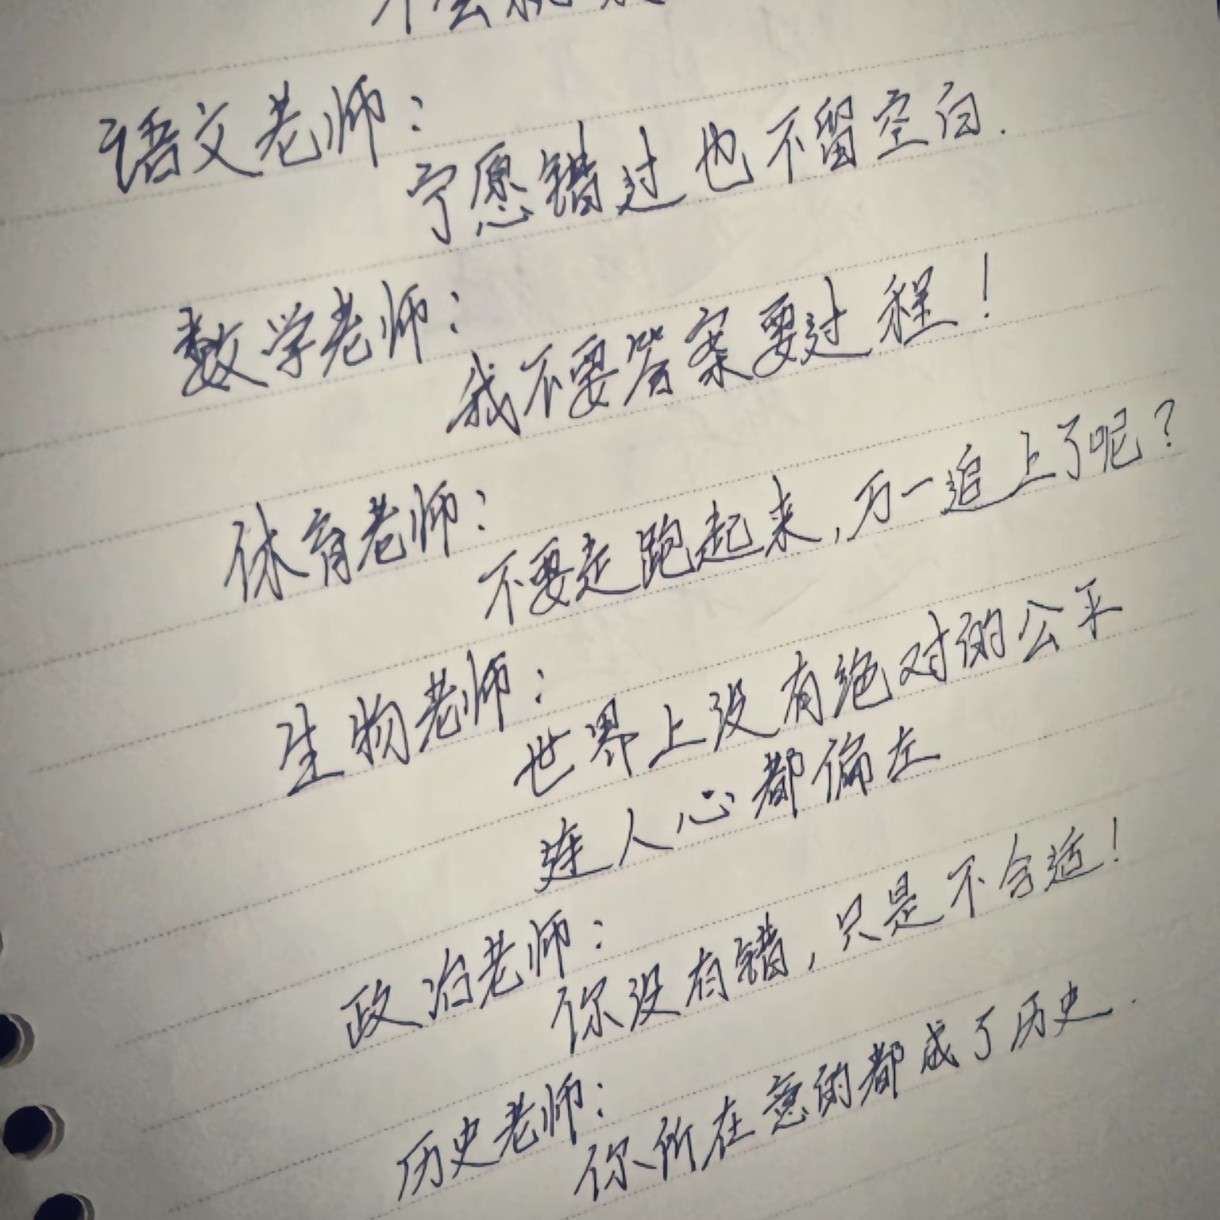 语文老师：
宁愿错过也不留空白.
数学老师：
我不要答案要过程！
体育老师：
不要走跑起来,万一追上了呢？
生物老师：
世界上没有绝对的公平
连人心都偏左
政治老师：
你没有错,只是不合适！
历史老师：
你所在意的都成了历史.